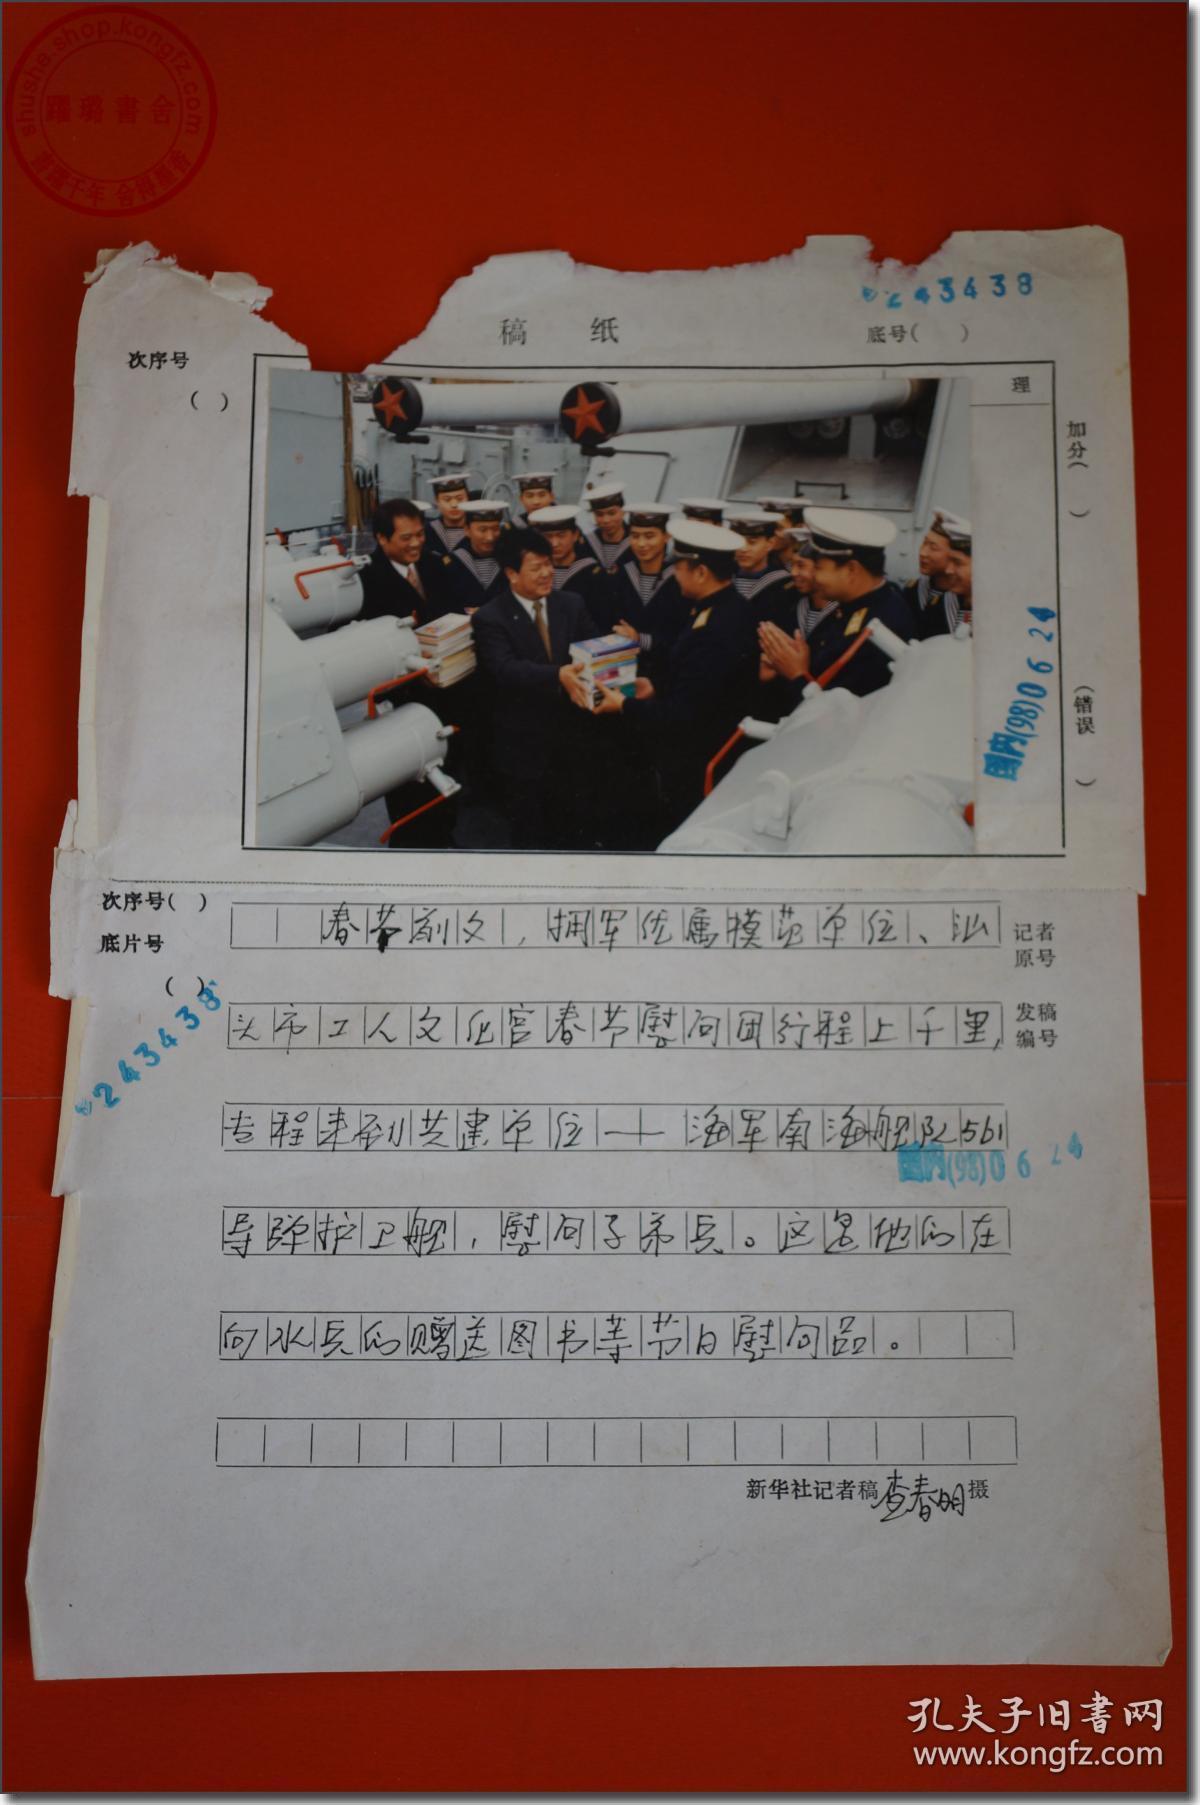 shushe.shop.kongfz.com
243438
稿 纸
底号( )
次序号
( )
理
加分( )
国内(98)0624
(错误 )
次序号( )
底片号
( )
243438
春节前夕，拥军优属模范单位、汕
记者原号
头市工人文化宫春节慰问团行程上千里，
发稿编号
专程来到共建单位——海军南海舰队561
国内(98)0624
导弹护卫舰，慰问子弟兵。这是他们在
向水兵们赠送图书等节日慰问品。
新华社记者稿 李春明 摄
孔夫子旧书网
www.kongfz.com